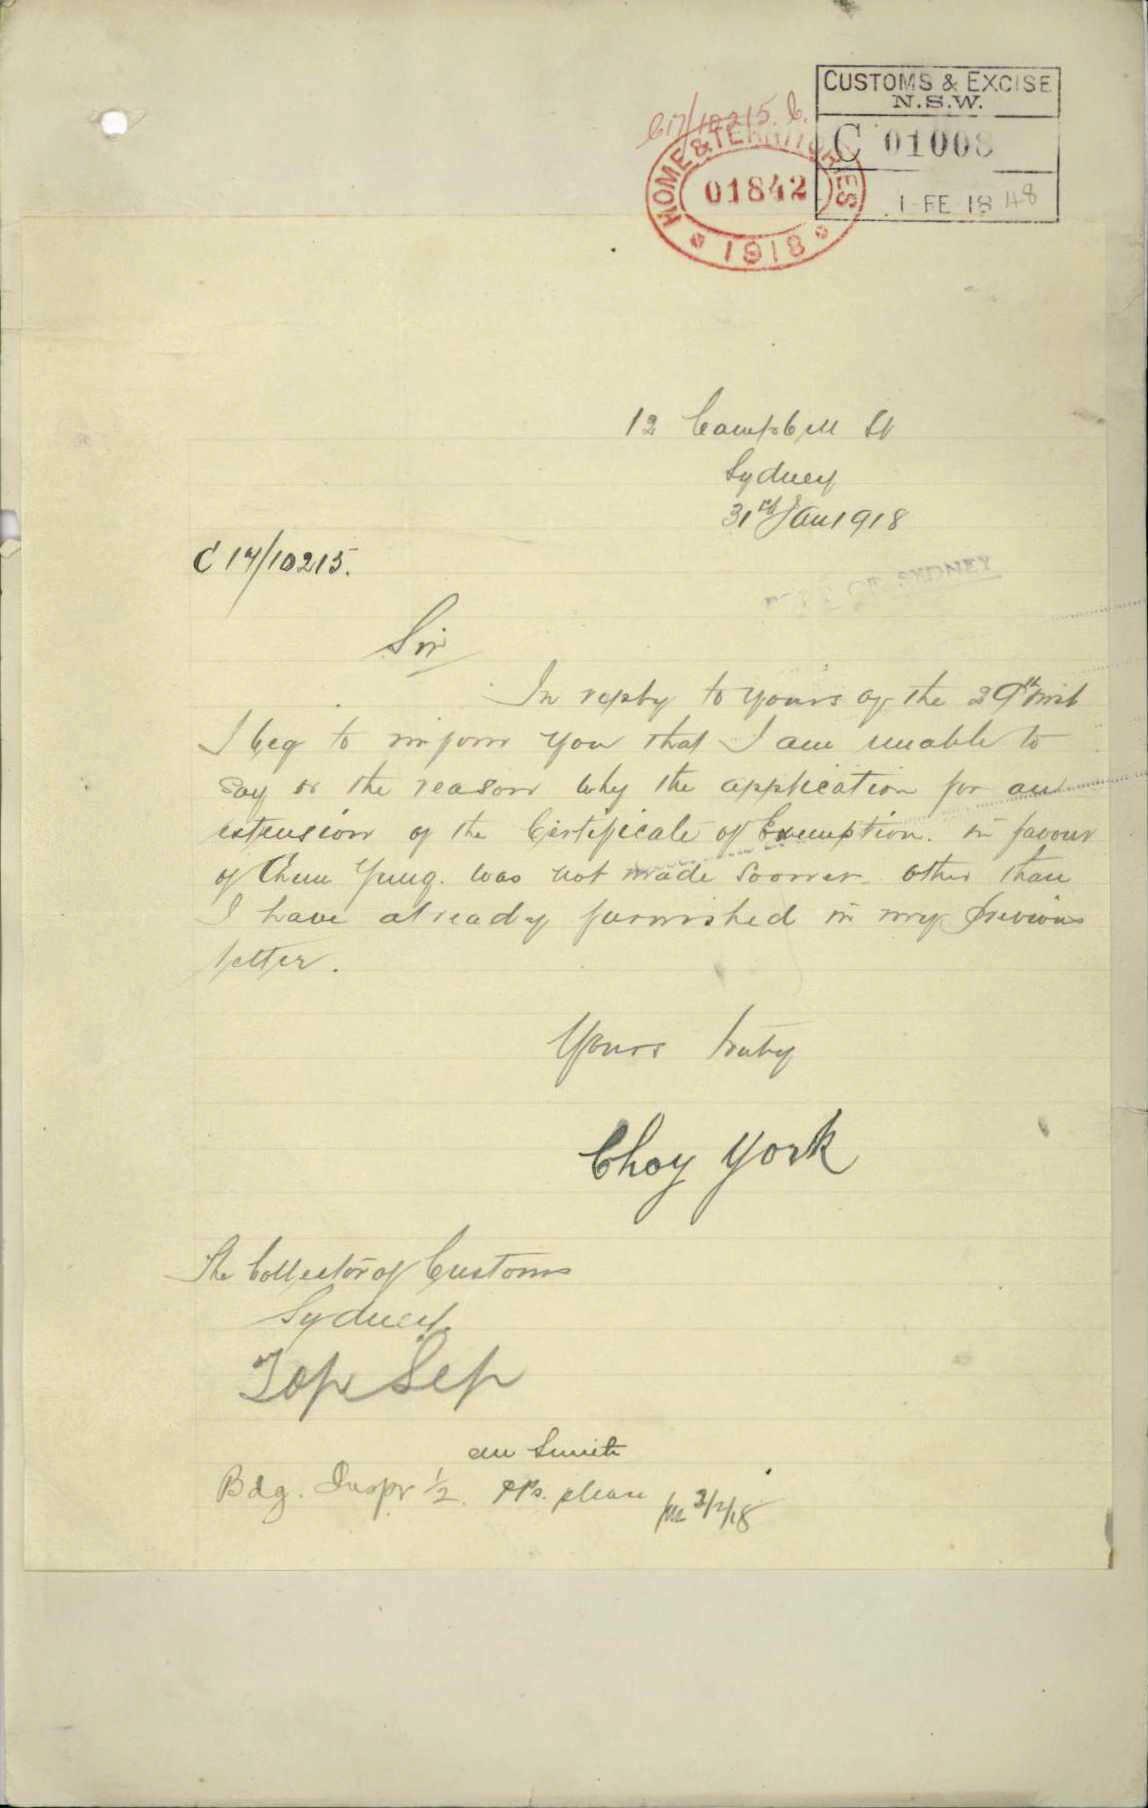 C17/10215. C.
CUSTOMS & EXCISE
N.S.W.
C 01008
1 - FE 18 48
HOME & TERRITORIES
01842
1918
12 Campbell St
Sydney
31st Jan 1918
C 17/10215.
OF SYDNEY
Sir
In reply to yours of the 29th inst
I beg to inform you that I am unable to
say as the reason why the application for an
extension of the Certificate of Exemption. in favour
of Chun Yung. was not made sooner other than
I have already furnished in my previous
letter.
Yours truly
Choy York
The Collector of Customs
Sydney.
Top Sep
Smith
Bdg. Inspr 1/2. PPs. please 2/2/18